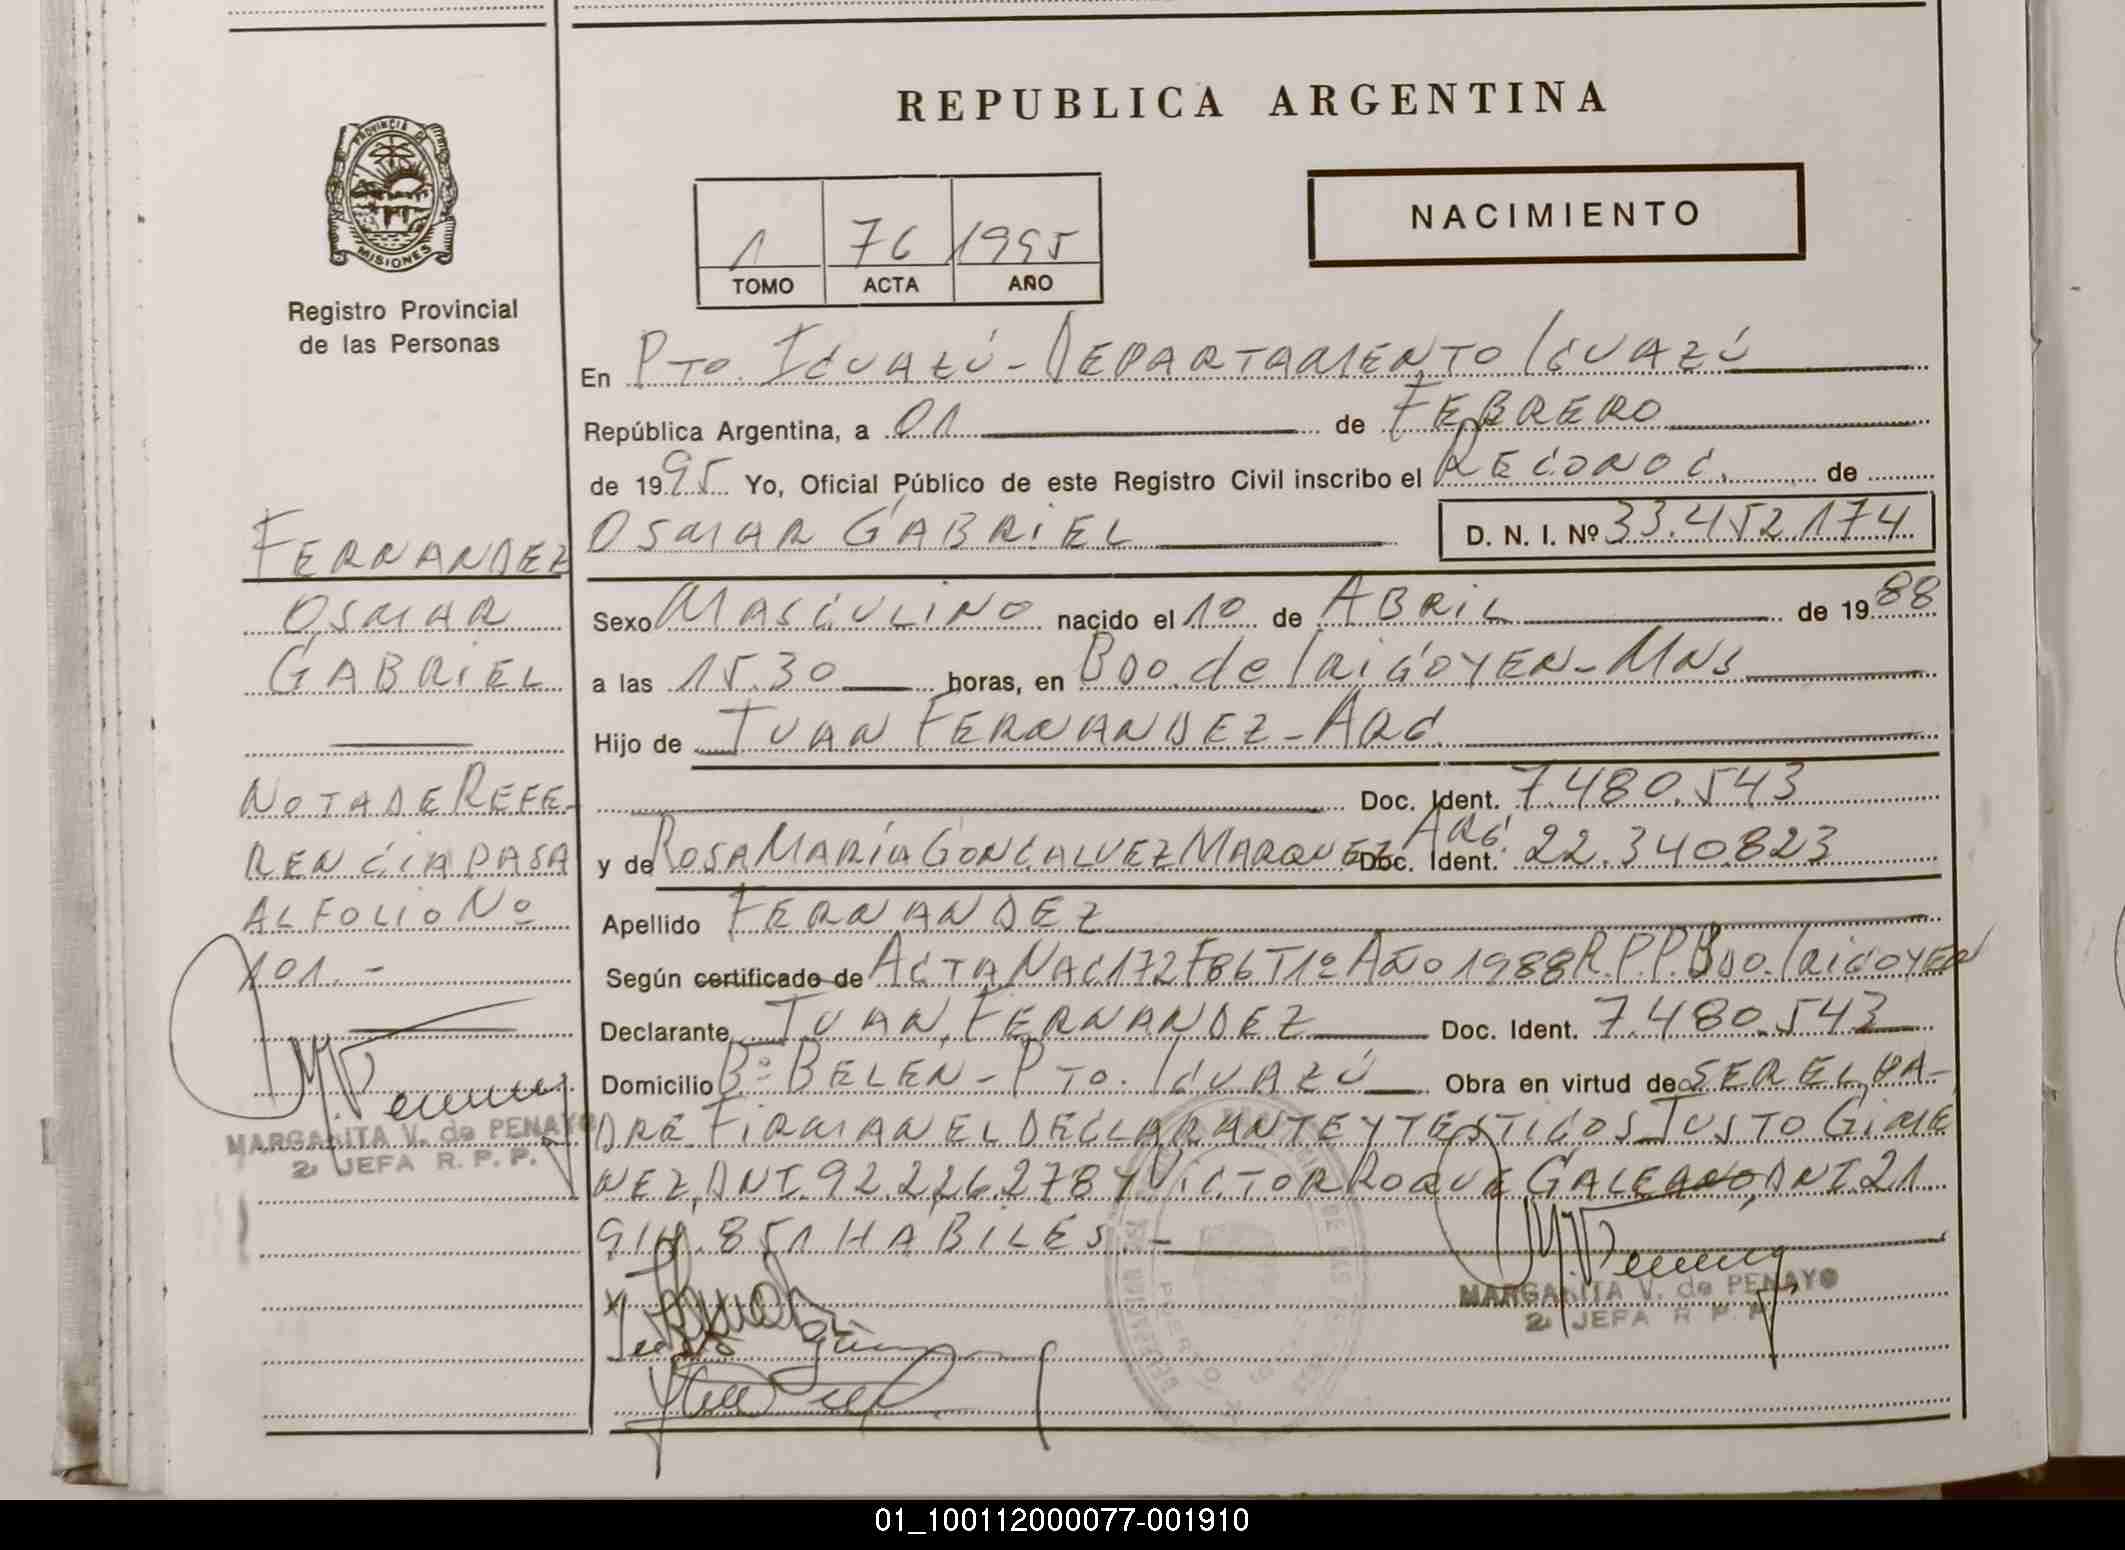 REPUBLICA ARGENTINA
PROVINCIA DE
MISIONES
Registro Provincial
de las Personas
1 76 1995
TOMO ACTA AÑO
NACIMIENTO
En PTO. IGUAZÚ - DEPARTAMENTO IGUAZÚ
República Argentina, a 01 de FEBRERO
de 1995 Yo, Oficial Público de este Registro Civil inscribo el RECONOC. de
OSMAR GABRIEL D. N. I. Nº 33.452.174
Sexo MASCULINO nacido el 10 de ABRIL de 1988
a las 15.30 horas, en BDO. de IRIGOYEN - MNS
Hijo de JUAN FERNANDEZ - ARG.
Doc. Ident. 7.480.543
y de ROSA MARÍA GONCALVEZ MARQUEZ ARG. Doc. Ident. 22.340.823
Apellido FERNANDEZ
Según certificado de ACTA NAC 172 F86 T1º AÑO 1988 R.P.P. BDO. IRIGOYEN
Declarante JUAN FERNANDEZ Doc. Ident. 7.480.543
Domicilio Bº BELEN - PTO. IGUAZÚ Obra en virtud de SER EL PA-
DRE FIRMAN EL DECLARANTE Y TESTIGOS JUSTO GIME
NEZ, DNI. 92.226.278 Y VICTOR ROQUE GALEANO, DNI. 21.
914.851 HABILES. -
MARGARITA V. de PENAYO
2ª JEFA R. P. P.
FERNANDEZ
OSMAR
GABRIEL
NOTA DE REFE-
RENCIA PASA
AL FOLIO Nº
101. -
MARGARITA V. de PENAYO
2ª JEFA R. P. P.
01_100112000077-001910